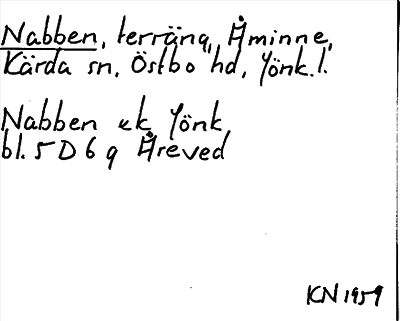 Nabben, terräng, Åminne,
Kärda sn, Östbo hd, Jönk. l.
Nabben ek Jönk
bl. 5 D 6 g Åreved
KN 1959